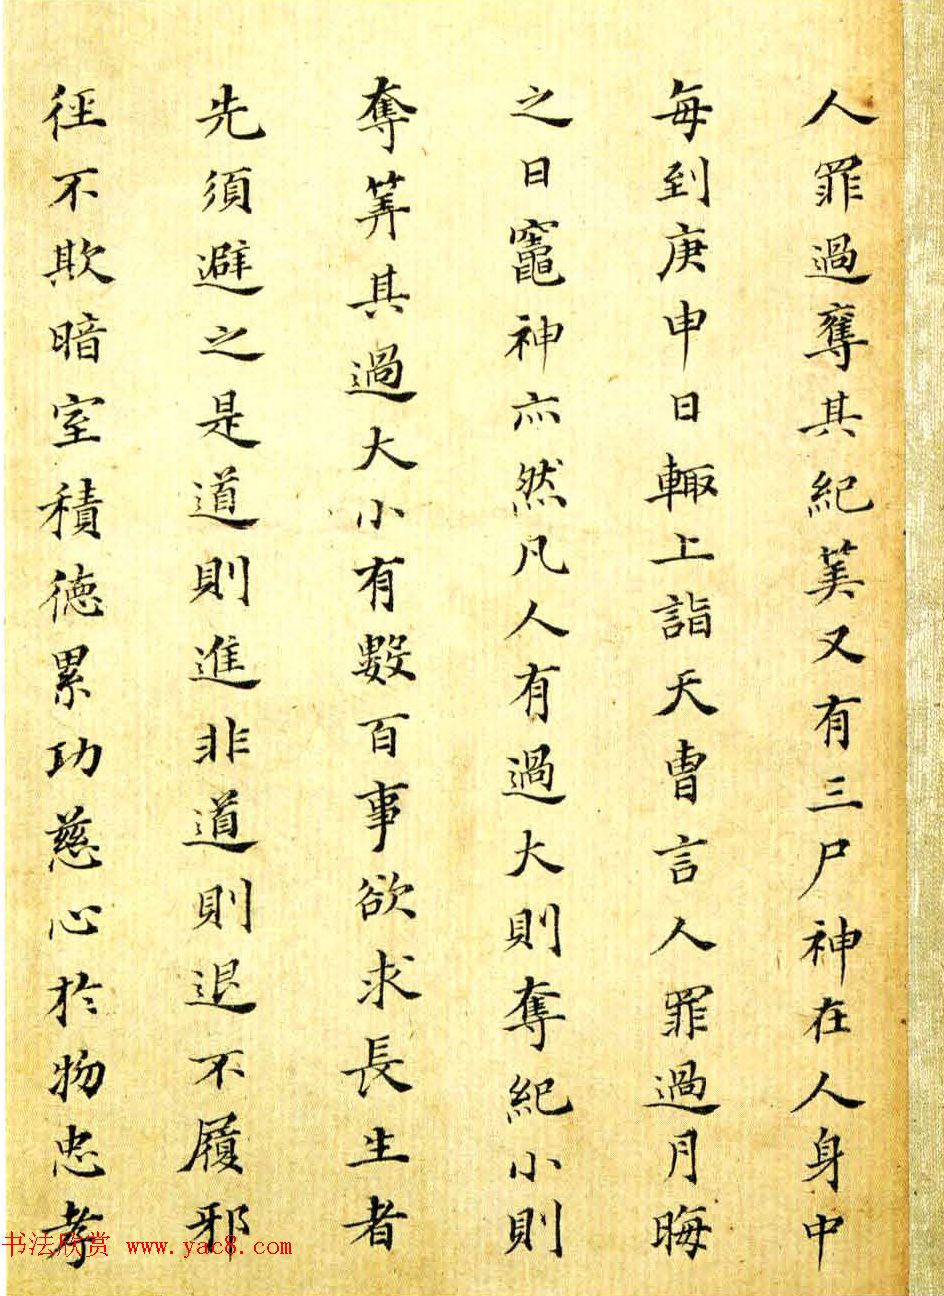 人罪過奪其紀筭又有三尸神在人身中
每到庚申日輙上詣天曹言人罪過月晦
之日竈神亦然凡人有過大則奪紀小則
奪筭其過大小有數百事欲求長生者
先須避之是道則進非道則退不履邪
徑不欺暗室積德累功慈心於物忠孝
书法欣赏 www.yac8.com